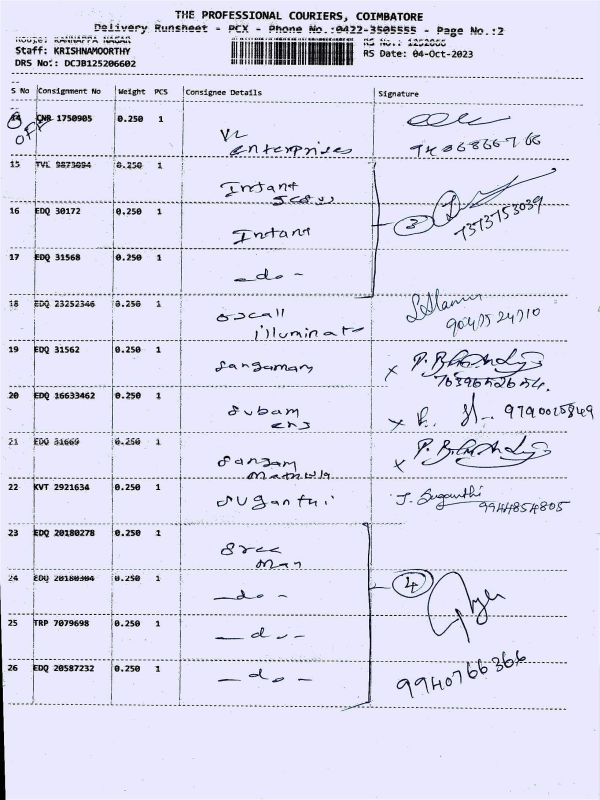 THE PROFESSIONAL COURIERS, COIMBATORE
Delivery Runsheet - PCX - Phone No.:0422-3505555 - Page No.:2
Route: KANNAPPA NAGAR
RS No.: 1252066
Staff: KRISHNAMOORTHY
RS Date: 04-Oct-2023
DRS No.: DCJB125206602
S No Consignment No Weight PCS Consignee Details Signature
14 CNB 1750905 0.250 1
off
enterprises
15 TVL 9873094 0.250 1 Intant
16 EDQ 30172 0.250 1 Intant
3
7373753039
17 EDQ 31568 0.250 1 - do -
18 EDQ 23252346 0.250 1
illuminate
19 EDQ 31562 0.250 1 Sangamam x
20 EDQ 16633462 0.250 1 Subam x
21 EDQ 31669 0.250 1 Sangam x
22 KVT 2921634 0.250 1 Suganthi J. Suganthi
9944854805
23 EDQ 20180278 0.250 1 Sree
Man
24 EDQ 20180304 0.250 1 - do - 4
25 TRP 7079698 0.250 1 - do -
26 EDQ 20587232 0.250 1 - do - 9940766366